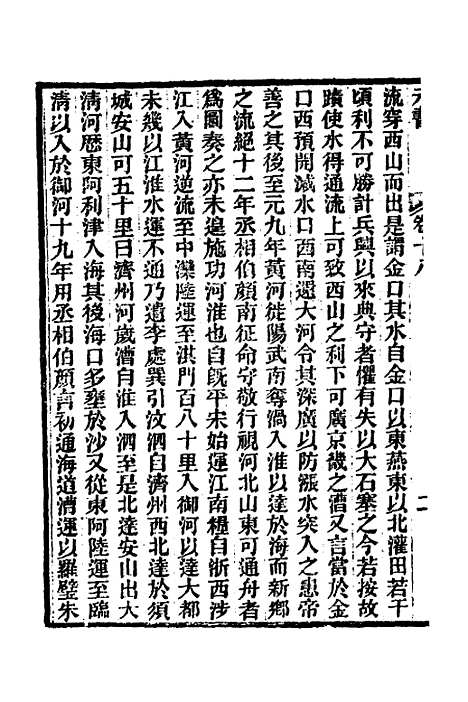 元書
卷十八
二
流穿西山而出是謂金口其水自金口以東燕東以北灌田若干
頃利不可勝計兵興以來典守者懼有失以大石塞之今若按故
蹟使水得通流上可致西山之利下可廣京畿之漕又言當於金
口西預開減水口西南還大河令其深廣以防漲水突入之患帝
善之其後至元九年黃河徙陽武南奪渦入淮以達於海而新鄉
之流絕十二年丞相伯顏南征命守敬行視河北山東可通舟者
爲圖奏之亦未遑施功河淮也自旣平宋始運江南糧自浙西涉
江入黃河逆流至中灤陸運至淇門百八十里入御河以達大都
未幾以江淮水運不通乃遣李處巽引汶泗自濟州西北達於須
城安山可五十里曰濟州河歲漕自淮入泗至是北達安山出大
淸河歷東阿利津入海其後海口多壅於沙又從東阿陸運至臨
淸以入於御河十九年用丞相伯顏言初通海道漕運以羅璧朱